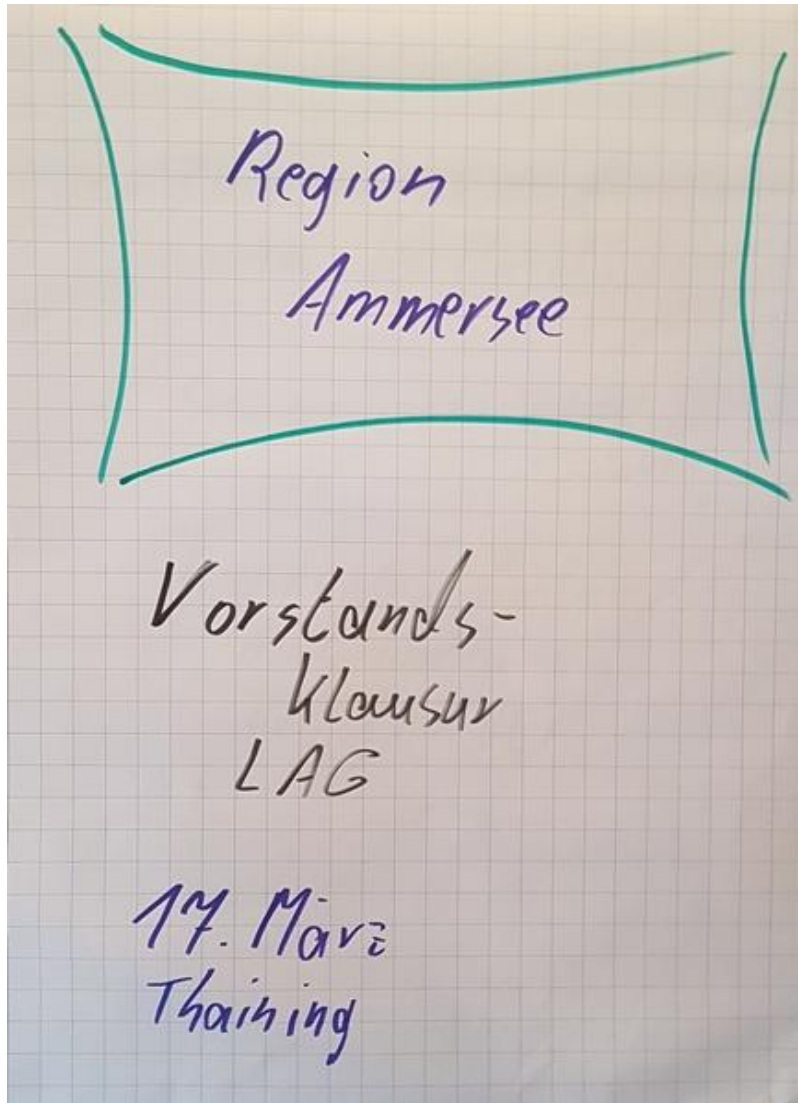 Region
Ammersee
Vorstands-
Klausur
LAG
17. März
Thaining